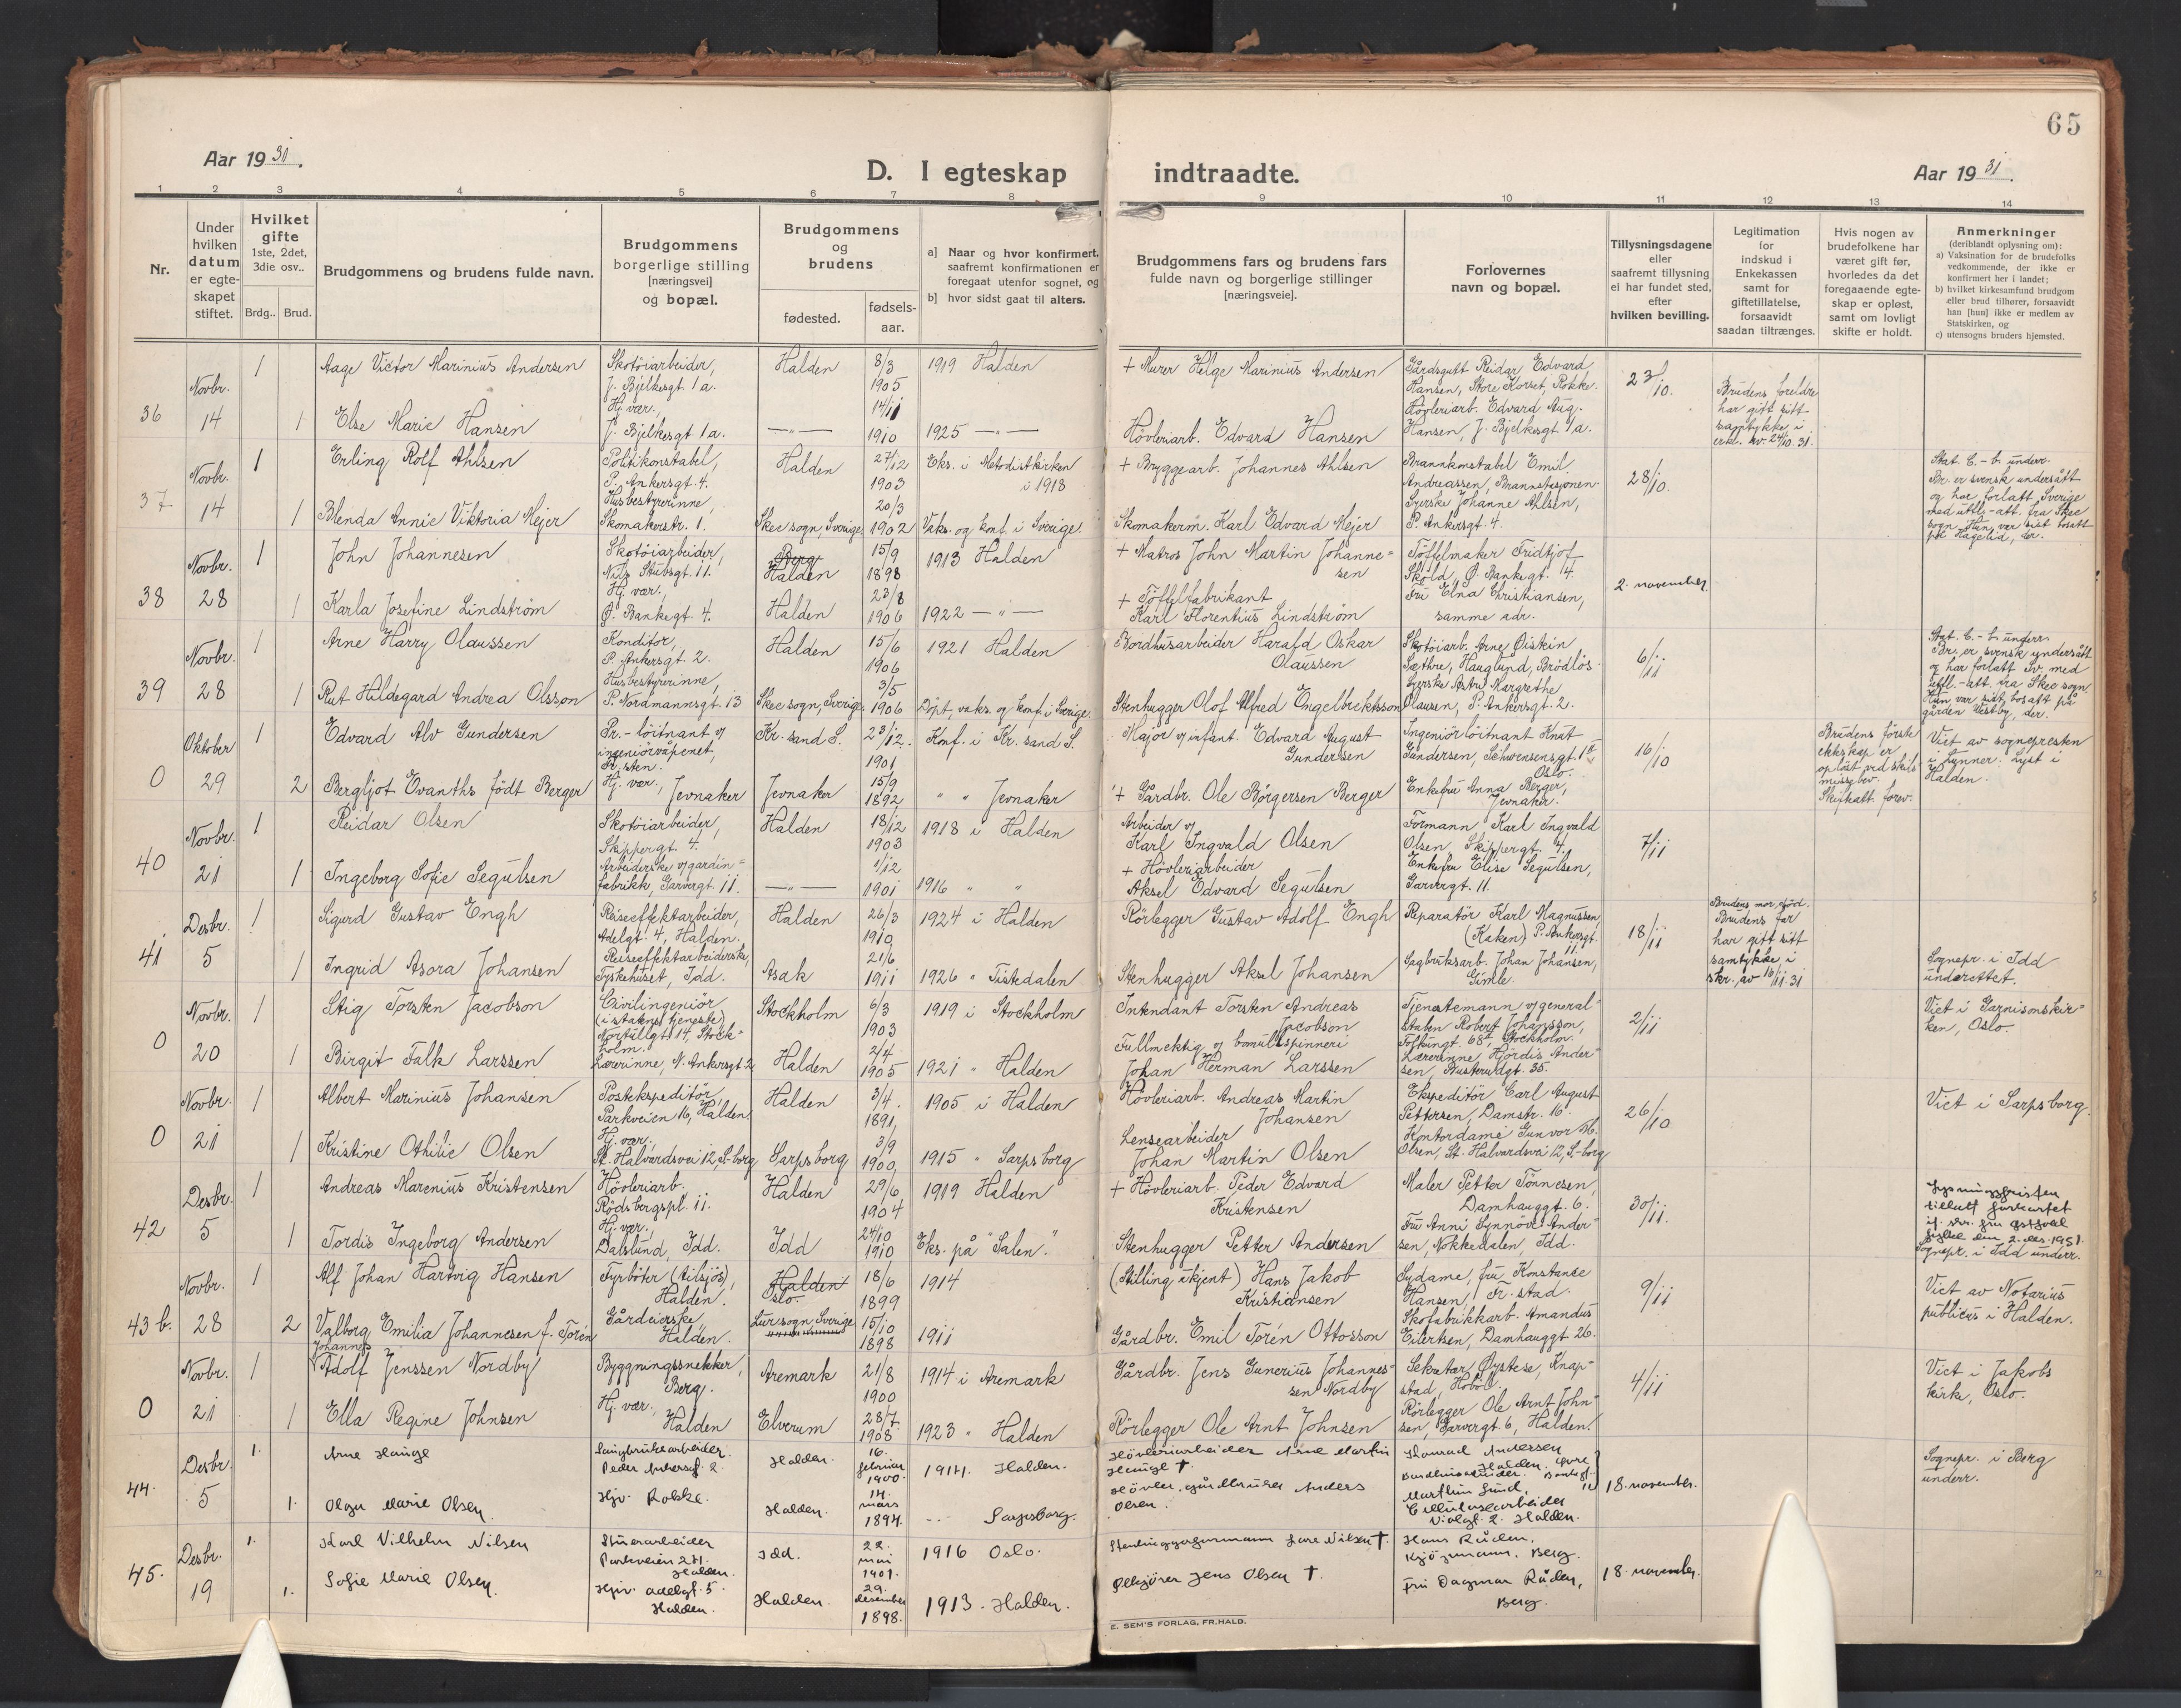 65
Aar 1931.
D. I egteskap indtraadte.
Aar 1931.
1 2 3 4 5 6 7 8 9 10 11 12 13 14
Nr.
Under hvilken datum er egte-skapet stiftet.
Hvilket gifte 1ste, 2det, 3die osv..
Brdg.. Brud.
Brudgommens og brudens fulde navn.
Brudgommens borgerlige stilling [næringsvei] og bopæl.
Brudgommens og brudens
fødested.
fødsels-aar.
a] Naar og hvor konfirmert, saafremt konfirmationen er foregaat utenfor sognet, og
b] hvor sidst gaat til alters.
Brudgommens fars og brudens fars fulde navn og borgerlige stillinger [næringsveie].
Forlovernes navn og bopæl.
Tillysningsdagene eller saafremt tillysning ei har fundet sted, efter hvilken bevilling.
Legitimation for indskud i Enkekassen samt for giftetillatelse, forsaavidt saadan tiltrænges.
Hvis nogen av brudefolkene har været gift før, hvorledes da det foregaaende egte-skap er opløst, samt om lovligt skifte er holdt.
Anmerkninger (deriblandt oplysning om):
a) Vaksination for de brudefolks vedkommende, der ikke er konfirmert her i landet;
b) hvilket kirkesamfund brudgom eller brud tilhører, forsaavidt han [hun] ikke er medlem av Statskirken, og
c) utensogns bruders hjemsted.
36 Novbr. 14 1 Aage Victor Marinius Andersen Skotöiarbeider, J. Bjelkesgt. 1a. Halden 8/3 1905 1919 Halden + Murer Helge Marinius Andersen Gårdsgutt Reidar Edvard Hansen, Store Korset, Rokke. 23/10.
1 Else Marie Hansen Hj. vær., J. Bjelkesgt 1a. —"— 14/11 1910 1925 —"— Hövleriarb. Edvard Hansen Hövleriarb. Edvard Aug. Hansen, J. Bjelkesgt 1a. Brudens foreldre har gitt sitt samtykke i erkl. av 24/10. 31.
37 Novbr. 14 1 Erling Rolf Ahlsen Politikonstabel, P. Ankersgt. 4. Halden 27/12 1903 Eks. i Metodistkirken i 1918 + Bryggearb. Johannes Ahlsen Brannkonstabel Emil Andreassen, Brannstasjonen. 28/10.
1 Blenda Annie Viktoria Mejer Husbestyrerinne, Skomakerstr. 1. Skee sogn, Sverige 20/3 1902 Vaks. og konf. i Sverige. Skomakerm. Karl Edvard Mejer Syerske Johanne Ahlsen, P. Ankersgt. 4. Stat. C.-b. underr. Br. er svensk undersått og har forlatt Sverige med utfl.-att. fra Skee sogn. Hun var sist bosatt på Hagelid, der.
38 Novbr. 28 1 John Johannesen Skotöiarbeider, Nils Stubsgt. 11. Berg Halden 15/9 1898 1913 Halden + Matros John Martin Johanne=sen Töffelmaker Fridtjof Sköld, Ø. Bankegt. 4. 2. november.
1 Karla Josefine Lindström Hj. vær., Ø. Bankegt. 4. Halden 23/8 1906 1922 —"— + Töffelfabrikant Karl Florentius Lindström Fru Elna Christiansen, samme adr.
39 Novbr. 28 1 Arne Harry Olaussen Konditor, P. Ankersgt. 2. Halden 15/6 1906 1921 Halden Bordhusarbeider Harald Oskar Olaussen Skotöiarb. Arne Øistein Sæthre, Hauglund, Brödlös. 6/11
1 Rut Hildegard Andrea Olsson Husbestyrerinne, P. Nordmannsgt. 13 Skee sogn, Sverige. 3/5 1906 Döpt, vaks. og konf. i Sverige. Stenhugger Olof Alfred Engelbrektsson Syerske Astrid Margrethe Olausen, P. Ankersgt. 2. Stat. C.-b. underr. Br. er svensk undersått og har forlatt Sv. med utfl.-att. fra Skee sogn. Hun var sist bosatt på gården Vestby, der.
0 Oktober 29 1 Edvard Alv Gundersen Pr.-löitnant v/ ingeniörvåpenet, Pr.sten. Kr. sand S. 23/12. 1901 Konf. i Kr. sand S. Major v/ infant. Edvard August Gundersen Ingeniörlöitnant Knut Gundersen, Schwensensgt. 1, Oslo. 16/10
2 Bergljot Evanths födt Berger Hj. vær., Jevnaker Jevnaker 15/9 1892 " " Jevnaker + Gårdbr. Ole Børgersen Berger Enkefru Anna Berger, Jevnaker. Brudens förste ekteskap er oplöst ved skilsmissebev. Skifteatt. forev. Viet av sognepresten i Lunner. Lyst i Halden.
40 Novbr. 21 1 Reidar Olsen Skotöiarbeider, Skippergt. 4. Halden 18/12 1903 1918 i Halden Arbeider v/ Karl Ingvald Olsen Formann Karl Ingvald Olsen, Skippergt. 4. 7/11
1 Ingeborg Sofie Segulsen Arbeiderske v/ gardin=fabrikk, Garvergt. 11. —"— 1/12 1901 1916 " " + Hövleriarbeider Aksel Edvard Segulsen Enkefru Elise Segulsen, Garvergt. 11.
41 Desbr. 5 1 Sigurd Gustav Engh Reiseeffektarbeider, Adelgt. 4, Halden. Halden 26/3 1910 1924 i Halden Rörlegger Gustav Adolf Engh Reparatör Karl Magnussen, (Kaken) P. Ankersgt. 11. 18/11
1 Ingrid Asora Johansen Reiseeffektarbeiderske, Tyskehuset, Idd. Asak 21/6 1911 1926 " Tistedalen Stenhugger Aksel Johansen Sagbruksarb. Johan Johansen, Gimle. Brudens mor död. Brudens far har gitt sitt samtykke i skr. av 16/11. 31 Sognepr. i Idd underettet.
0 Novbr. 20 1 Stig Torsten Jacobson Civilingeniör (i statens tjeneste) Norrtullgt 14, Stock=holm. Stockholm 6/3 1903 1919 i Stockholm Intendant Torsten Andreas Jacobson Tjenestemann v/ general=staben Robert Johansson, Folkungt. 68, Stockholm. 2/11
1 Birgit Falk Larssen Lærerinne, N. Ankersgt 2 Halden 2/4 1905 1921 " Halden Fullmektig v/ bomullspinneri Johan Herman Larssen Lærerinne Hjördis Ander=sen, Busterudgt. 35. Viet i Garnisonskir=ken, Oslo.
0 Novbr. 21 1 Albert Marinius Johansen Postekspeditör, Parkveien 16, Halden Halden 3/4. 1891, 1905 i Halden Hövleriarb. Andreas Martin Johansen Ekspeditör Carl August Pettersen, Damstr. 16. 26/10
1 Kristine Othilie Olsen Hj. vær., St. Halvardsvei 12, S-borg Sarpsborg 3/9 1900, 1915 " Sarpsborg Lensearbeider Johan Martin Olsen Kontordame Gunvor M. Olsen, St. Halvardsvei 12, S-borg Viet i Sarpsborg.
42 Desbr. 5 1 Andreas Marenius Kristensen Hövleriarb. Rödsbergspl. 11. Halden 29/6 1904 1919 Halden + Hövleriarb. Peder Edvard Kristensen Maler Petter Tönnesen, Damhauggt. 6. 30/11.
1 Tordis Ingeborg Andersen Hj. vær., Dalslund, Idd. Idd 24/10 1910 Eks. på "Salen". Stenhugger Petter Andersen Fru Anni Synnöve Ander=sen, Nokkedalen, Idd. Lysningsfristen tillatt forkortet if. skr. fra Østfold fylke den 2. des. 1931. Sognepr. i Idd underr.
43 b. Novbr. 28 1 Alf Johan Hartvig Hansen Fyrböter (tilsjös), Halden. Halden Oslo. 18/6 1899 1914 (Stilling ukjent) Hans Jakob Kristiansen Sydame, fru Konstanse Hansen, Fr. stad. 9/11
2 Valborg Emilia Johannesen f. Torén Gårdeierske, Halden. Lur sogn, Sverige 15/10 1898 1911 Gårdbr. Emil Torén Ottosson Skofabrikkarb. Amandus Eilertsen, Damhauggt 26. Viet av Notarius publicus i Halden.
0 Novbr. 21 1 Johannes Adolf Jenssen Nordby Bygningssnekker, Berg. Aremark 21/8 1900 1914 i Aremark Gårdbr. Jens Gunerius Johannes=sen Nordby Sekretær Øystese, Knap=stad, Hobøl. 4/11
1 Ella Regine Johnsen Hj. vær., Halden Elverum 28/7 1908 1923 " Halden Rörlegger Ole Arnt Johnsen Rörlegger Ole Arnt John=sen, Garvergt. 6, Halden. Viet i Jakobs kirke, Oslo.
44. Desbr. 5 1. Arne Hauge Saugbruksarbeider. Peder Ankersgt. 2. Halden. 16. februar 1900. 1914. Halden. Hövleriarbeider Arne Martin Hauge †. Konrad Andersen Halden. 18. november.
1. Olga Marie Olsen Hjv. Rokke. Halden. 14. mars 1894. --- Sarpsborg. Anders Olsen. Marthin Lund, Cellulosearbeider Violgt. 2. Halden. Sognepr. i Berg underr.
45. Desbr. 19 1. Karl Vilhelm Nilsen Stuerarbeider Parkveien 24. Halden. Idd. 22. mai 1901. 1916 Oslo. Lars Nilsen †. Hans Råden, Kjøpmann. Berg. 18. november.
1. Sofie Marie Olsen. Hjv. Adelgt. 5. Halden. Halden. 29. desember 1898. 1913. Halden. Jens Olsen †. Fru Dagmar Råden, Berg.
E. SEM'S FORLAG, FR.HALD.